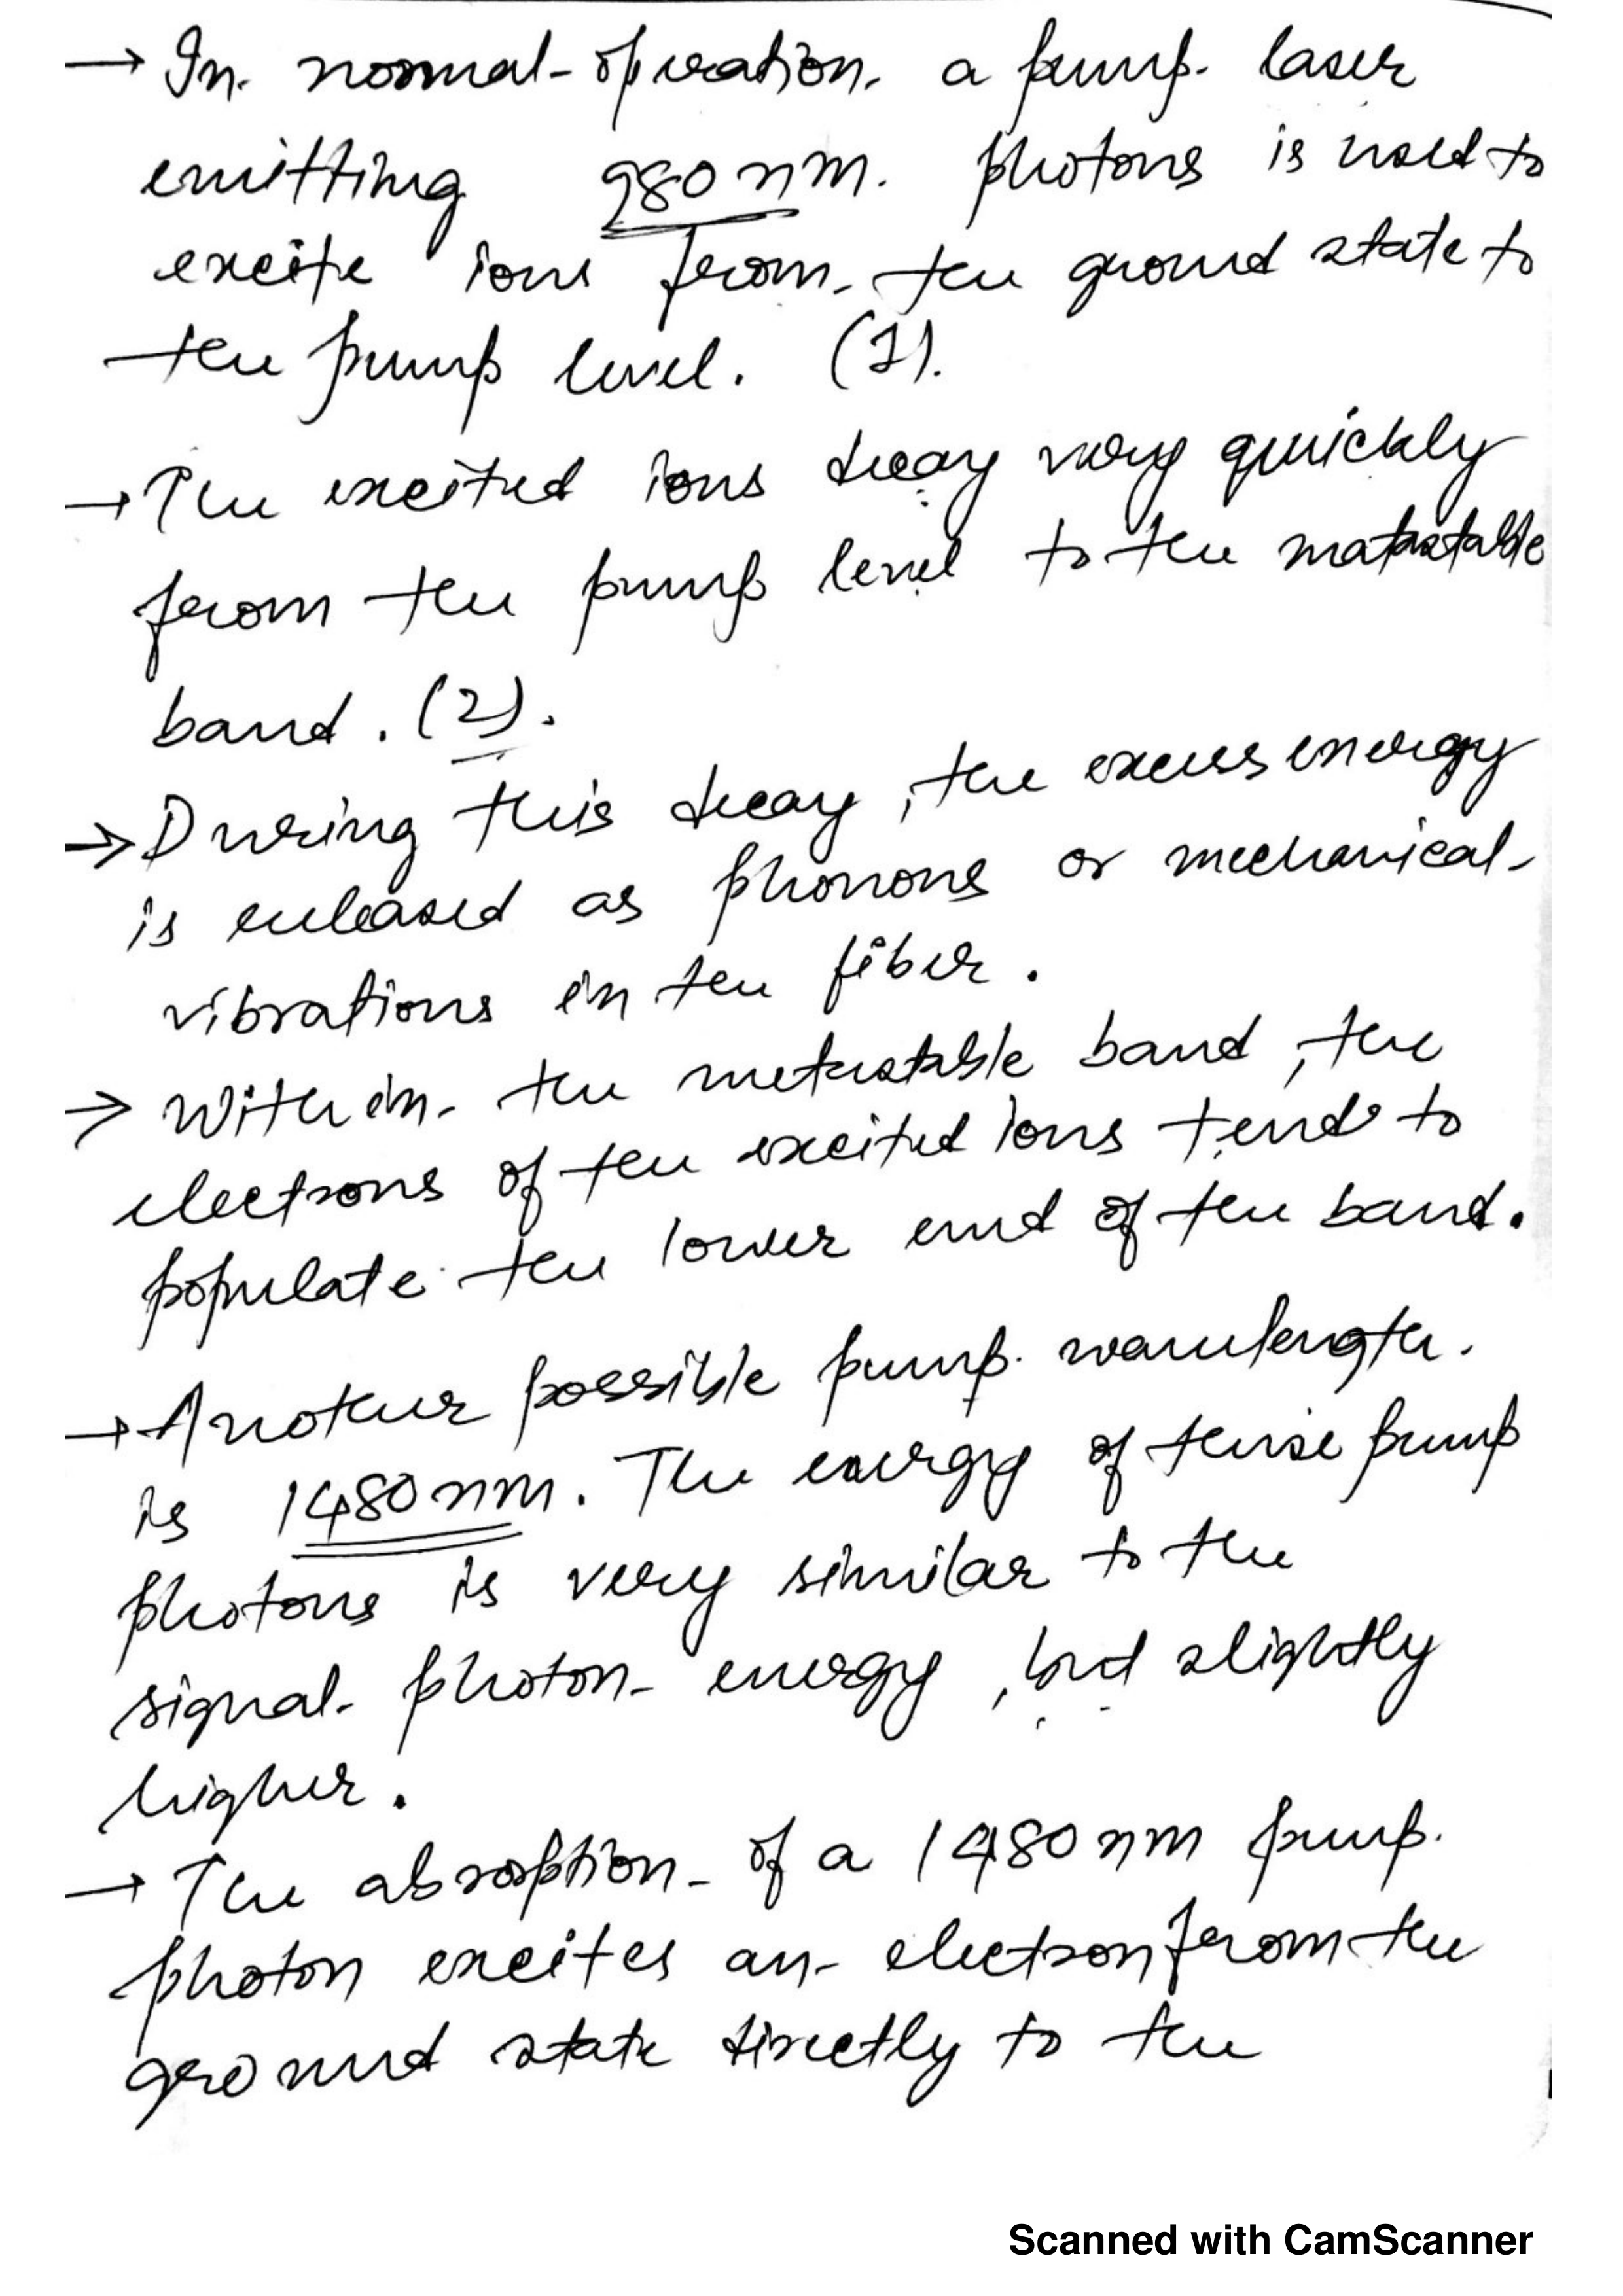 → In normal operation a pump laser
emitting 980 nm. photons is used to
excite ions from the ground state to
the pump level. (1).
→ The excited ions decay very quickly
from the pump level to the matastable
band. (2).
→ During this decay, the excess energy
is released as phonons or mechanical
vibrations in the fiber.
→ Within the metastable band, the
electrons of the excited ions tend to
populate the lower end of the band.
→ Another possible pump wavelength.
is 1480 nm. The energy of these pump
photons is very similar to the
signal photon energy, but slightly
higher.
→ The absorption of a 1480 nm pump.
photon excites an electron from the
ground state directly to the
Scanned with CamScanner